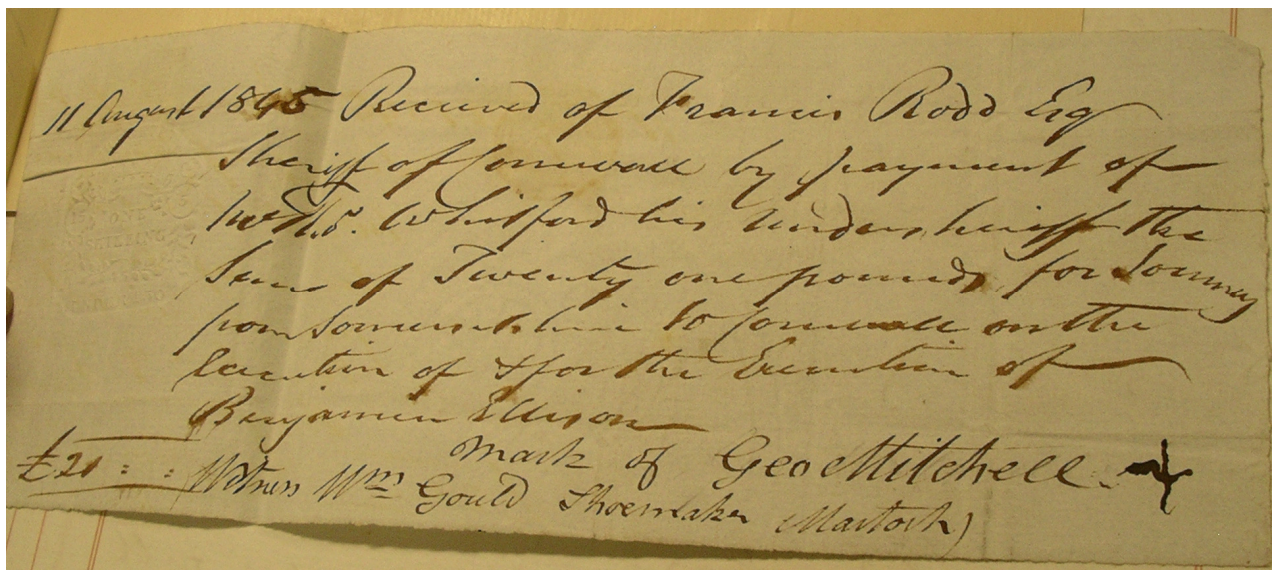 11 August 1845 Received of Francis Rodd Esq
Sheriff of Cornwall by payment of
Whitford his Undersheriff the
Sum of Twenty one pounds for Journey
from Somersetshire to Cornwall on the
Execution of & for the Execution of
Benjamin Ellison
mark of Geo Mitchell
£21 : : Witness Wm Gould Shoemaker Martock)